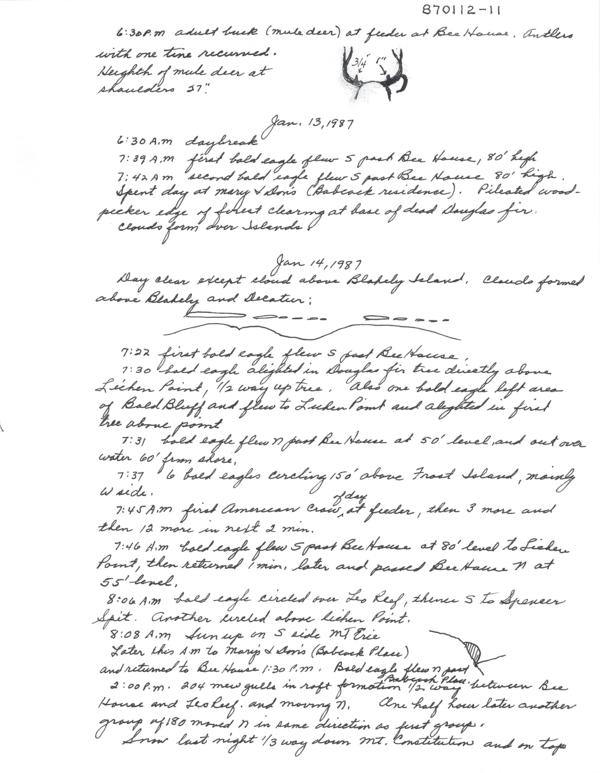 870112-11
6:30P.M adult buck (mule deer) at feeder at Bee House. Antlers
with one tine recurved.
Heighth of mule deer at
shoulders 27".
3/4" 1"
Jan. 13, 1987
6:30 A.M daybreak
7:39 A.M first bald eagle flew S past Bee House, 80' high
7:42 A.M second bald eagle flew S past Bee House 80' high.
Spent day at Mary & Don's (Babcock residence). Pileated wood-
pecker edge of forest clearing at base of dead Douglas fir.
Clouds form over Islands.
Jan 14, 1987
Day clear except cloud above Blakely Island. Clouds formed
above Blakely and Decatur:
7:22 first bald eagle flew S past Bee House.
7:30 bald eagle alighted in Douglas fir tree directly above
Lichen Point, 1/2 way up tree. Also one bald eagle left area
of Bald Bluff and flew to Lichen Point and alighted in first
tree above point
7:31 bald eagle flew N past Bee House at 50' level, and out over
water 60' from shore.
7:37 6 bald eagles circling 150' above Frost Island, mainly
W side.
7:45 A.M first American Crow of day, at feeder, then 3 more and
then 12 more in next 2 min.
7:46 A.M bald eagle flew S past Bee House at 80' level to Lichen
Point, then returned 1 min. later and passed Bee House N at
55' level.
8:06 A.M bald eagle circled over Leo Reef, thence S to Spencer
Spit. Another circled above Lichen Point.
8:08 A.M Sun up on S side MT Erie
Later this A.M to Mary's & Don's (Babcock Place)
and returned to Bee House 1:30 P.M. Bald eagle flew N past
Babcock Place.
2:00 P.M. 204 mew gulls in raft formation 1/2 way between Bee
House and Leo Reef. and moving N. One half hour later another
group of 180 moved N in same direction as first group.
Snow last night 1/3 way down Mt. Constitution and on top